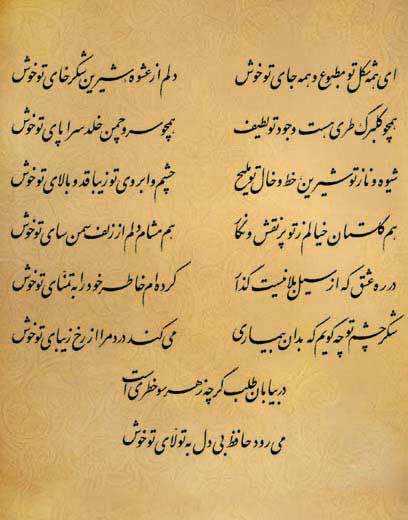 ای همه شکل تو مطبوع و همه جای تو خوش دلم از عشوه شیرین شکرخای تو خوش
همچو گلبرگ طری هست وجود تو لطیف همچو سرو چمن خلد سراپای تو خوش
شیوه و ناز تو شیرین خط و خال تو ملیح چشم و ابروی تو زیبا قد و بالای تو خوش
هم گلستان خیالم ز تو پر نقش و نگار هم مشام دلم از زلف سمن سای تو خوش
در ره عشق که از سیل بلا نیست گذار کرده ام خاطر خود را به تمنای تو خوش
شکر چشم تو چه گویم که بدان بیماری می کند درد مرا از رخ زیبای تو خوش
در بیابان طلب گر چه ز هر سو خطری است
می رود حافظ بی دل به تولّای تو خوش